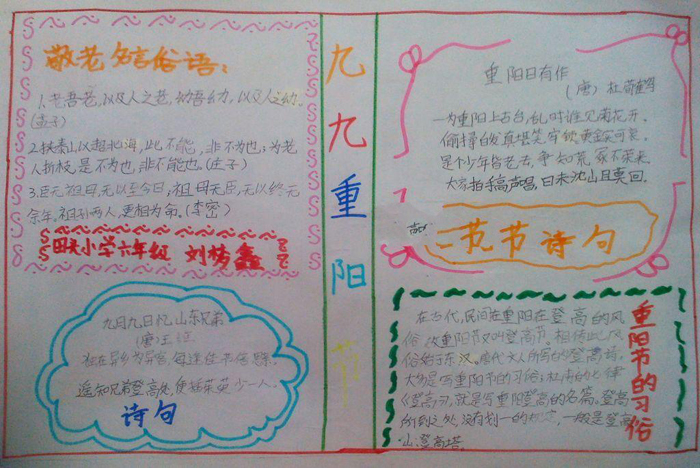 敬老名言俗语:
1.老吾老,以及人之老,幼吾幼,以及人之幼。
(孟子)
2.挟泰山以超北海,此不能,非不为也;为老
人折枝,是不为也,非不能也。(孟子)
3.臣无祖母,无以至今日,祖母无臣,无以终
余年,祖孙两人,更相为命。(李密)
小学六年级 刘梦鑫
九月九日忆山东兄弟
(唐)王
独在异乡为异客,每逢佳节倍思亲。
遥知兄弟登高处,便插茱萸少一人。
诗句
九九重阳节
重阳日有作
(唐)杜荀鹤
一为重阳上古台,乱时谁见菊花开。
偷挦白发真堪笑,牢锁黄金实可哀。
是个少年皆老去,争知荒冢不荣来。
大家拍手高声唱,日未沈山且莫回。
节诗句
重阳节的习俗
在古代,民间在重阳在登高的风
俗,故重阳节又叫登高节。相传此风
俗始于东汉。唐代文人所写的登高诗
大多是写重阳节的习俗;杜甫的七律
《登高》,就是写重阳登高的名篇。登高
所到之处,没有划一的规定,一般是登高
山、登高塔。